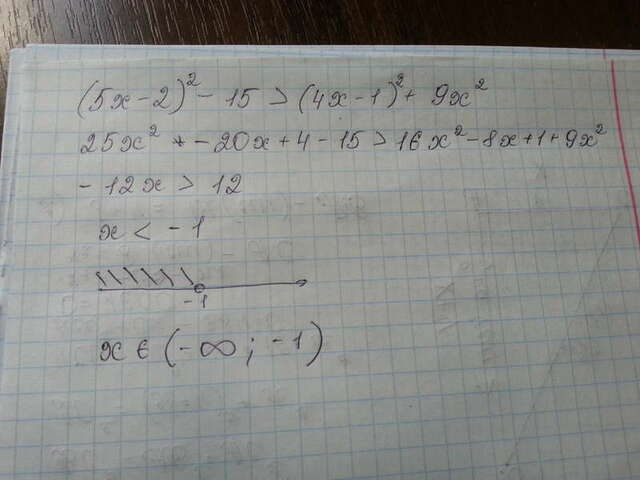 (5x-2)² - 15 > (4x-1)² + 9x²
25x² - 20x + 4 - 15 > 16x² - 8x + 1 + 9x²
- 12x > 12
x < - 1
-1
x ∈ (-∞; -1)